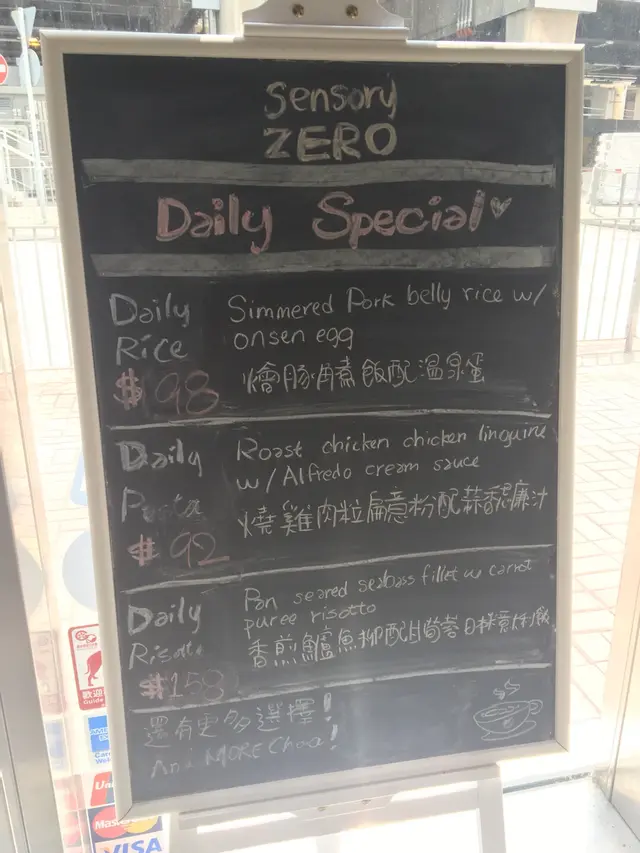 Sensory
ZERO
Daily Special
Daily
Rice
$ 98
Simmered Pork belly rice w/
onsen egg
燴豚角煮飯配溫泉蛋
Daily
Pasta
$ 92
Roast chicken chicken linguine
w/ Alfredo cream sauce
燒雞肉粒扁意粉配蒜香忌廉汁
Daily
Risotto
$158
Pan seared seabass fillet w carrot
puree risotto
香煎鱸魚柳配甘筍蓉
還有更多選擇!
And MORE
歡迎
Guide
Master
VISA